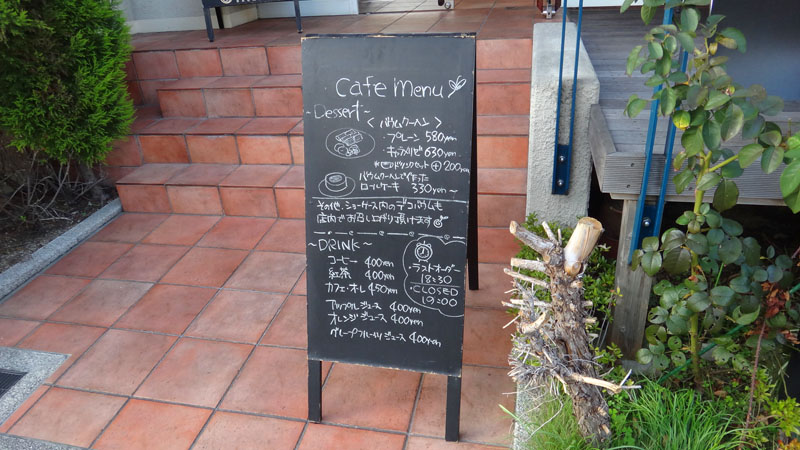 Cafe menu
~Dessert~
<バウムクーヘン>
・プレーン 580yen
・キャラメリゼ 630yen
※セットドリンクセット ⊕200yen
バウムクーヘンで作った
ロールケーキ 330yen~
その他、ショーケース内のデコバウムも
店内でお召し上がり頂けます
~DRINK~
コーヒー 400yen
紅茶 400yen
カフェ・オレ 450yen
アップルジュース 400yen
オレンジジュース 400yen
グレープフルーツジュース 400yen
・ラストオーダー
18:30
CLOSED
19:00